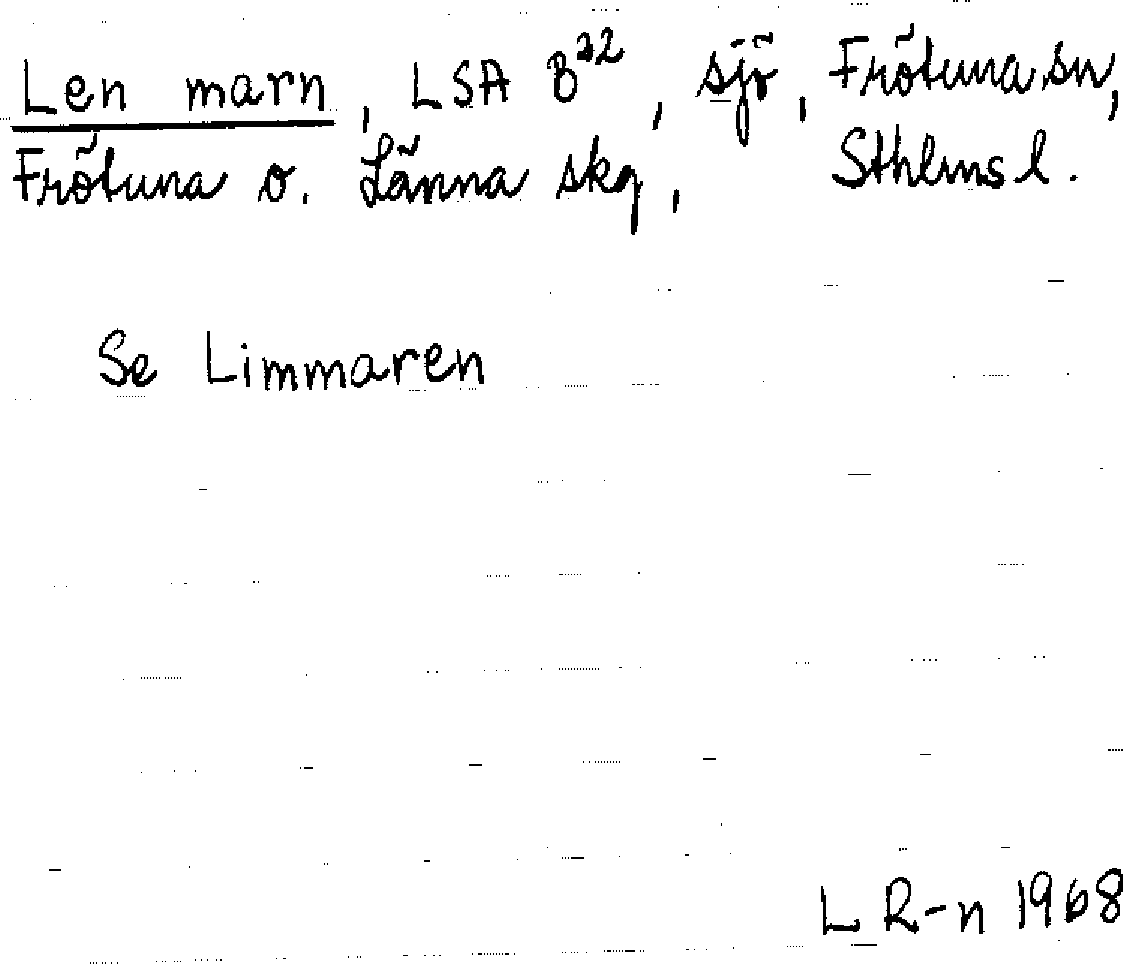 Len marn, LSA B²², sjö, Frötuna sn,
Frötuna o. Länna skg, Sthlms l.
Se Limmaren
L R-n 1968